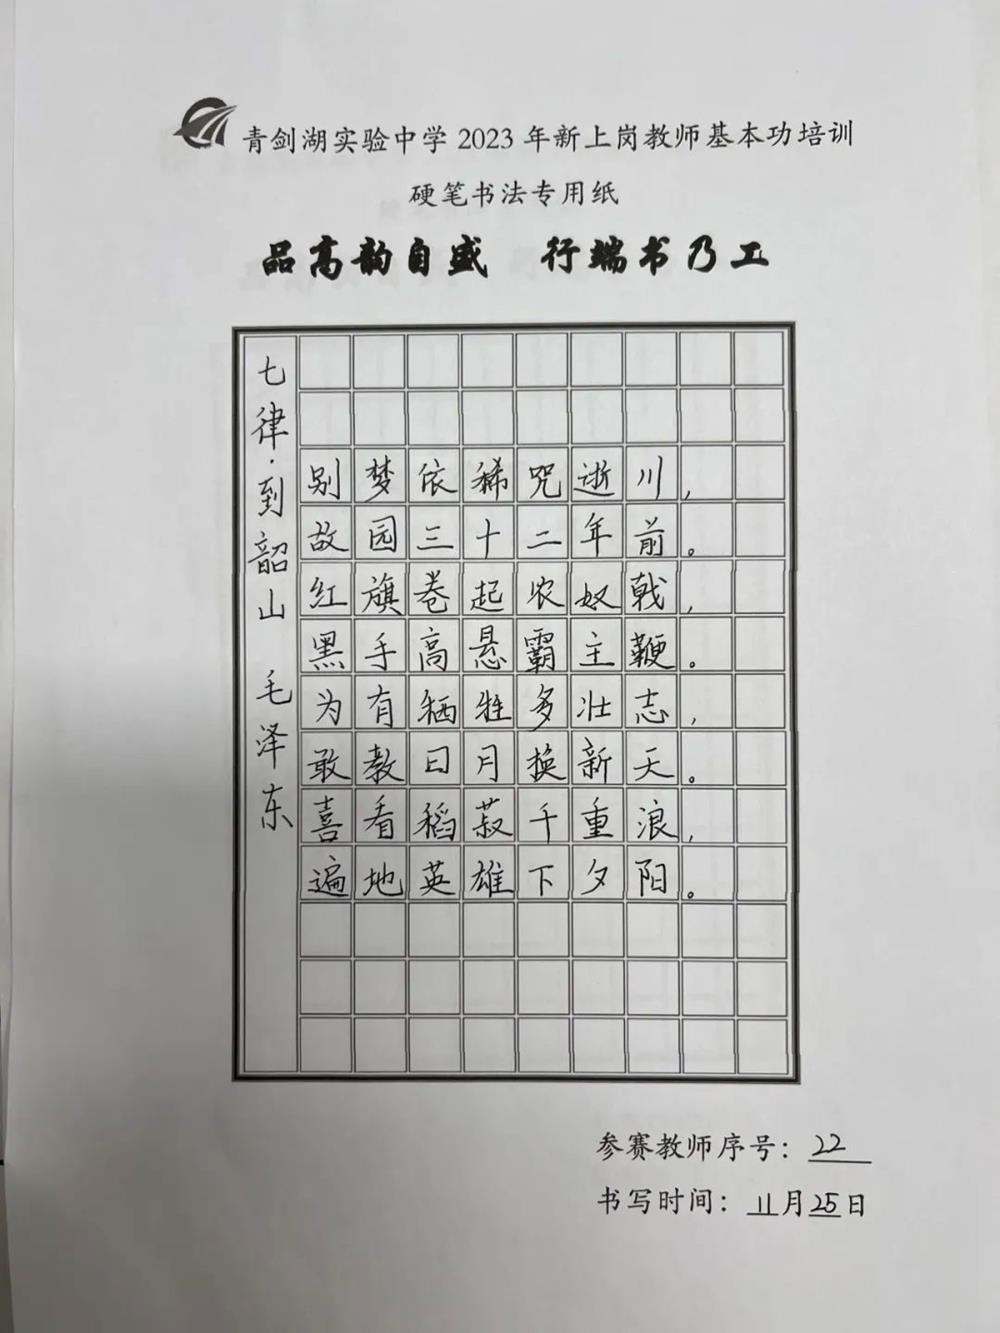 青剑湖实验中学2023年新上岗教师基本功培训
硬笔书法专用纸
品高韵自盛 行端书乃工
七律·到韶山 毛泽东
别梦依稀咒逝川，
故园三十二年前。
红旗卷起农奴戟，
黑手高悬霸主鞭。
为有牺牲多壮志，
敢教日月换新天。
喜看稻菽千重浪，
遍地英雄下夕阳。
参赛教师序号：22
书写时间：11月25日